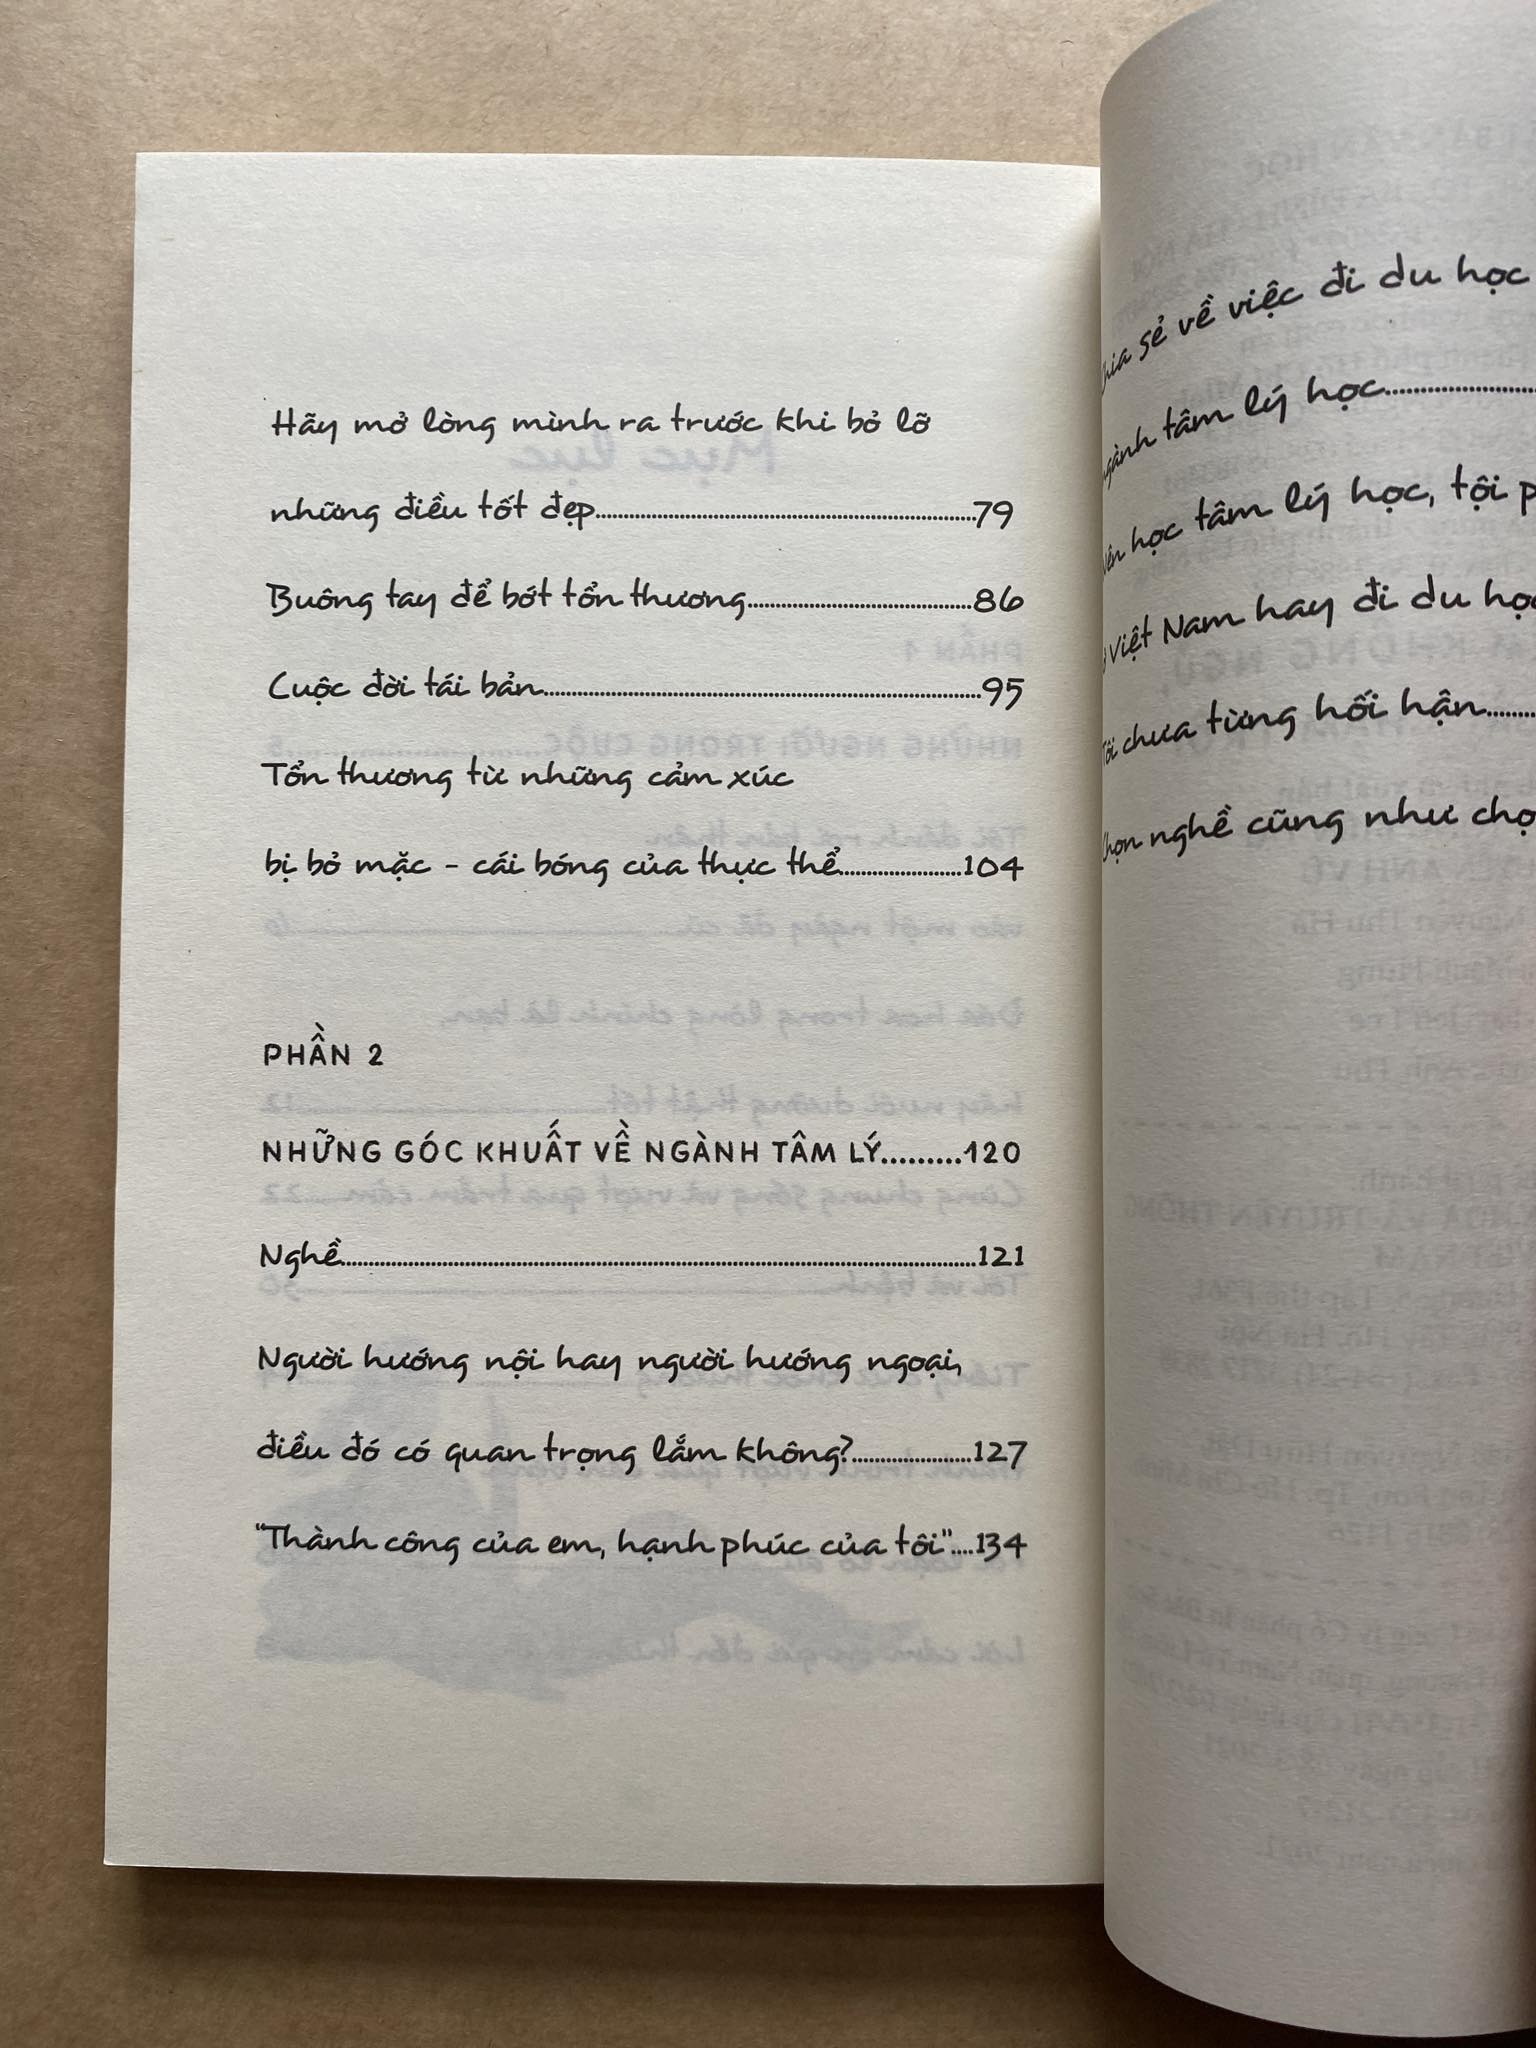 Hãy mở lòng mình ra trước khi bỏ lỡ
những điều tốt đẹp..........79
Buông tay để bớt tổn thương..........86
Cuộc đời tái bản..........95
Tổn thương từ những cảm xúc
bị bỏ mặc - cái bóng của thực thể..........104
PHẦN 2
NHỮNG GÓC KHUẤT VỀ NGÀNH TÂM LÝ.........120
Nghề..........121
Người hướng nội hay người hướng ngoại,
điều đó có quan trọng lắm không?..........127
"Thành công của em, hạnh phúc của tôi"....134
Chia sẻ về việc đi du học
ngành tâm lý học..........
học tâm lý học, tội
Việt Nam hay đi du học
Tôi chưa từng hối hận..........
Chọn nghề cũng như